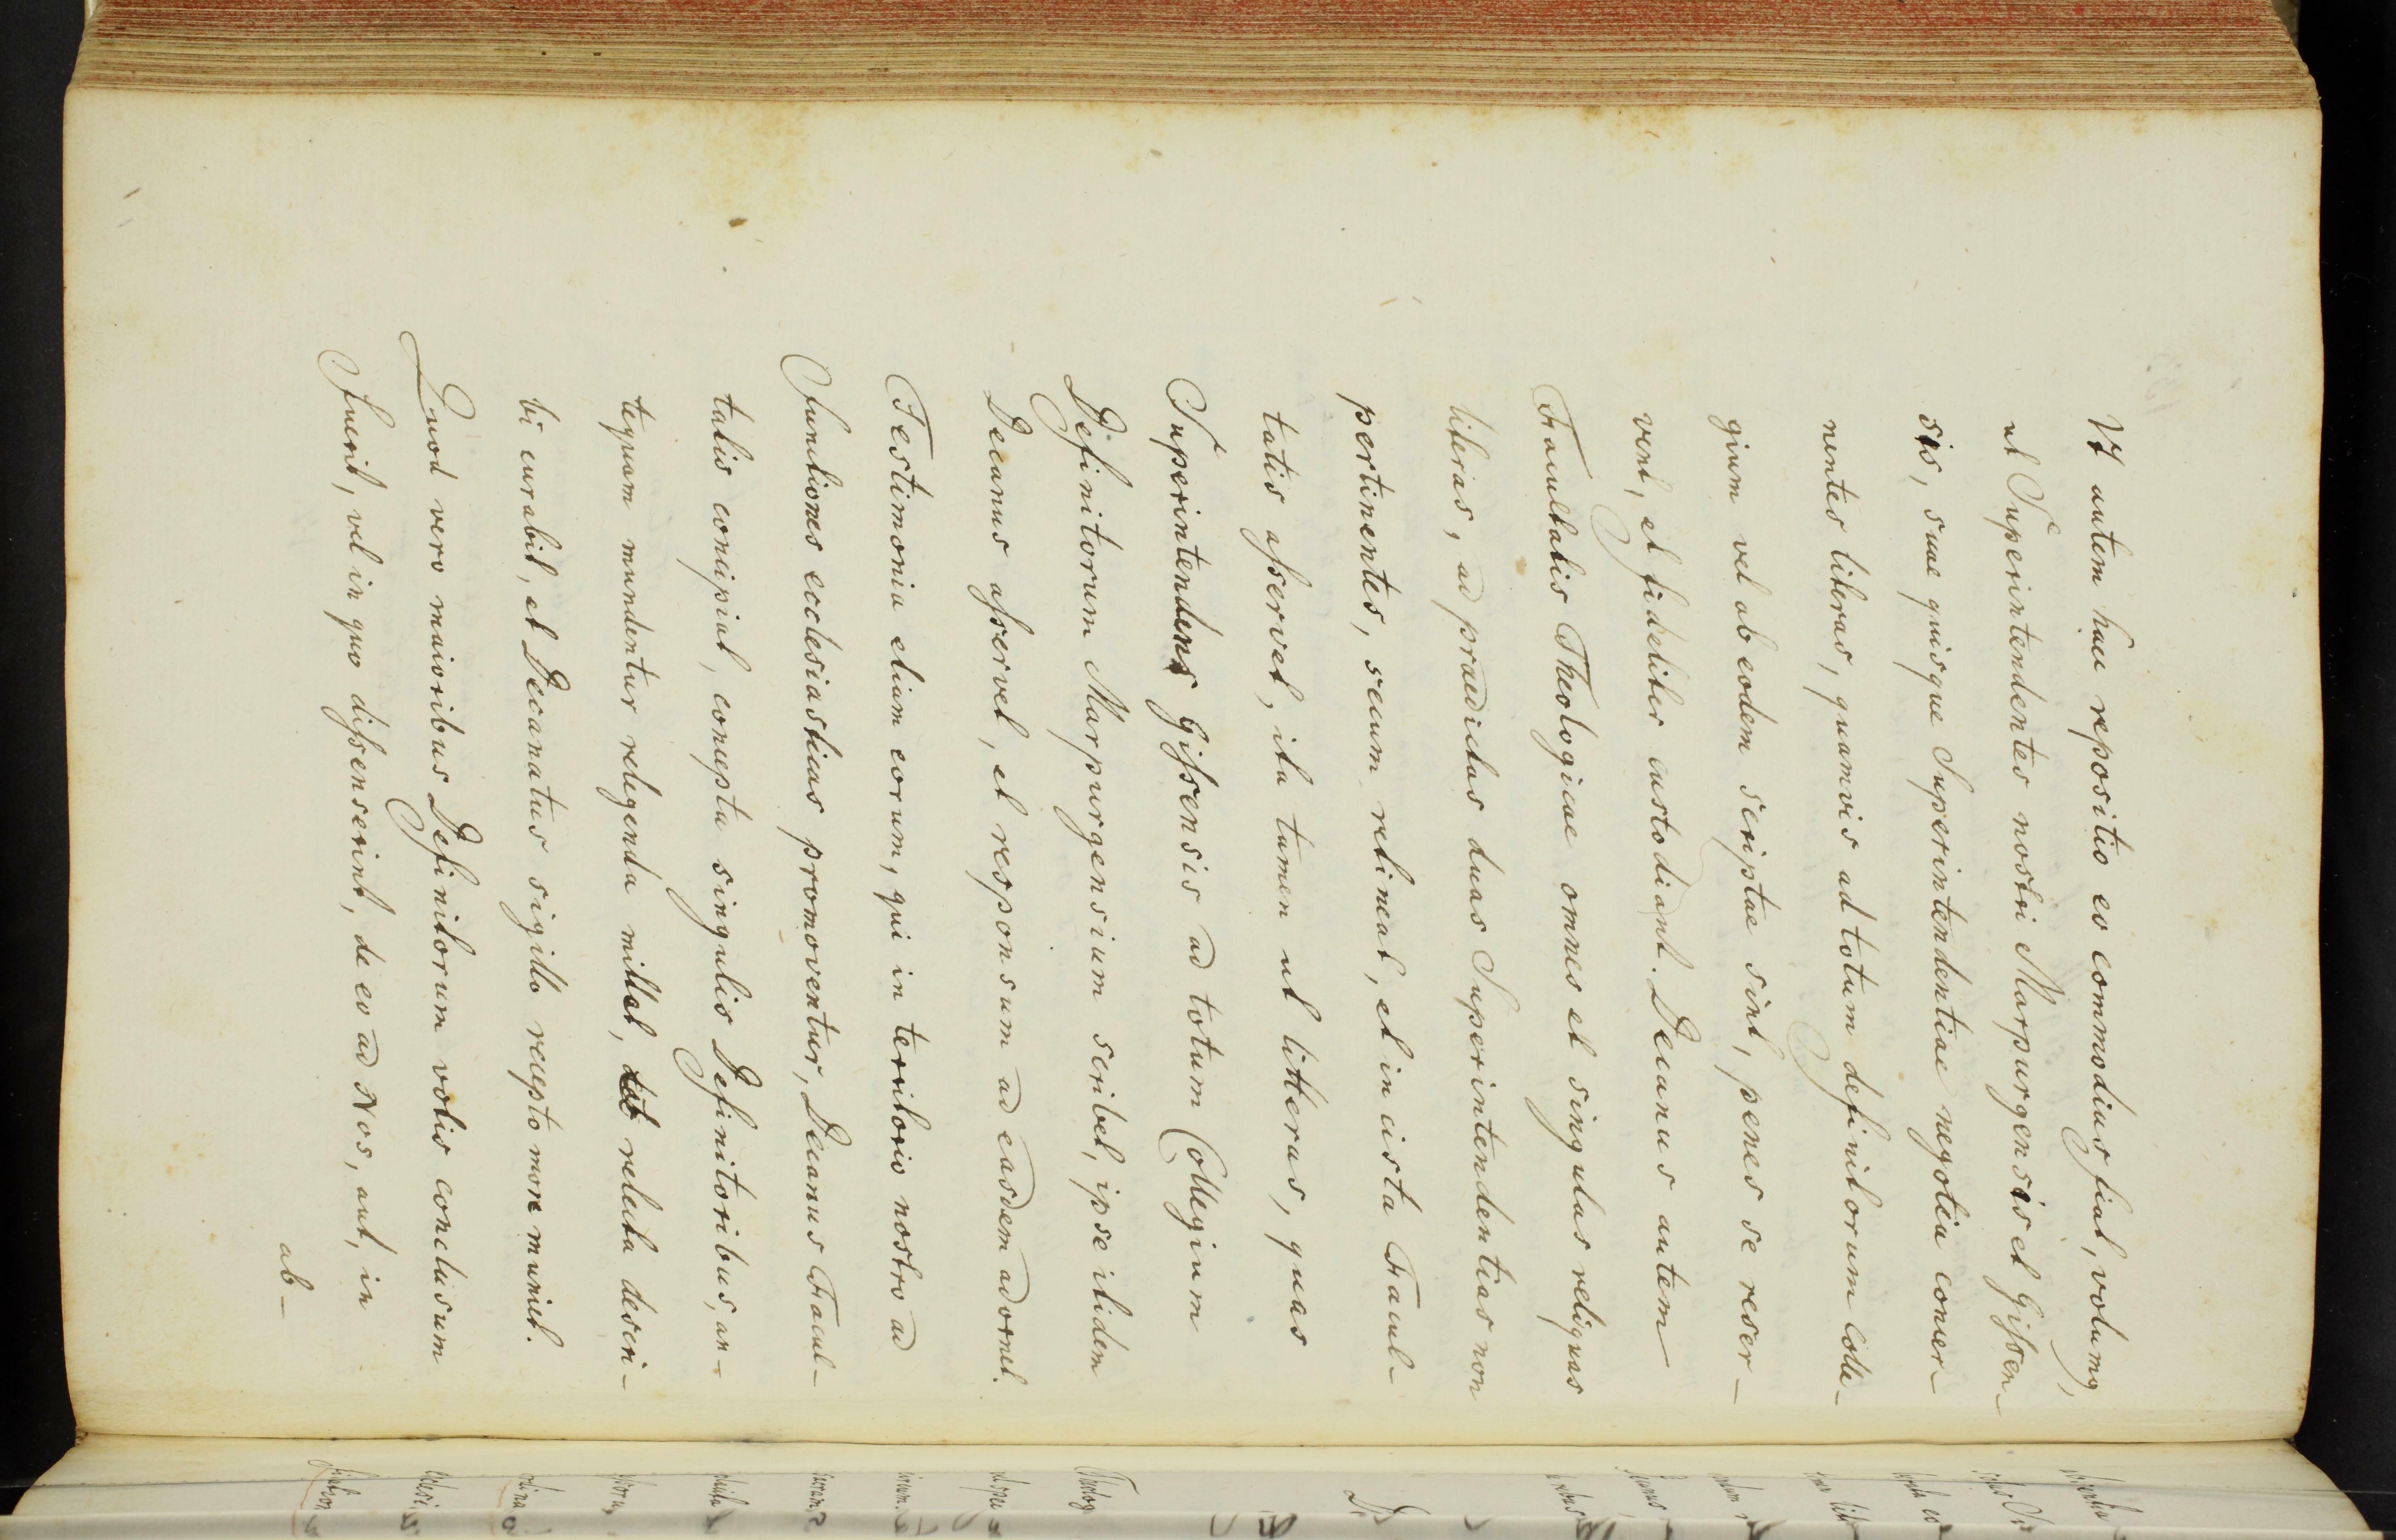 Vt autem haec repositio eo commodius fiat, volumus,
ut Superintendentes nostri Marpurgensis et Gissen-
sis, suae quisque Superintendentiae negotia concer-
nentes literas, quamvis ad totum definitorum colle-
gium vel ab eodem scriptae sint, penes se reser-
vent, et fideliter custodiant. Decanus autem
Facultatis Theologicae omnes et singulas reliquas
literas, ad praedictas duas Superintendentias non
pertinentes, secum retineat, et in cista Facul-
tatis asservet, ita tamen ut litteras, quas
Superintendens Gissensis ad totum Collegium
Definitorum Marpurgensium scribet, ipse itidem
Decanus asservet, et responsum ad easdem adornet.
Testimonia etiam eorum, qui in territorio nostro ad
functiones ecclesiasticas promoventur, Decanus Facul-
tatis concipiat, concepta singulis Definitoribus, an-
tequam mundentur relegenda mittet, relecta descri-
bi curabit, et Decanatus sigillo recepto more muniet.
Quod vero maioribus Definitorum votis conclusum
fuerit, vel in quo dissenserint, de eo ad Nos, aut, in
ab-